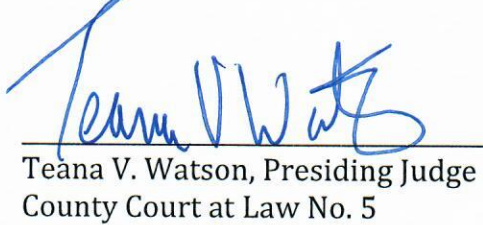 Teana V Watson
Teana V. Watson, Presiding Judge
County Court at Law No. 5